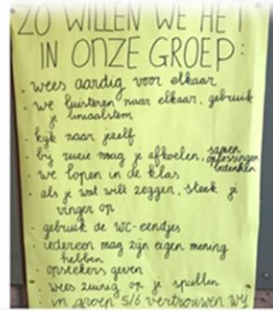 ZO WILLEN WE HET
IN ONZE GROEP:
. wees aardig voor elkaar
. we luisteren naar elkaar, gebruik
je liniaalstem
. kijk naar jezelf
. bij ruzie mag je afkoelen, samen
oplossingen
bedenken
. we lopen in de klas
. als je wat wilt zeggen, steek je
vinger op
. gebruik de WC-eendjes
. iedereen mag zijn eigen mening
hebben
. opstekers geven
. wees zuinig op je spullen
in groep 5/6 vertrouwen WY